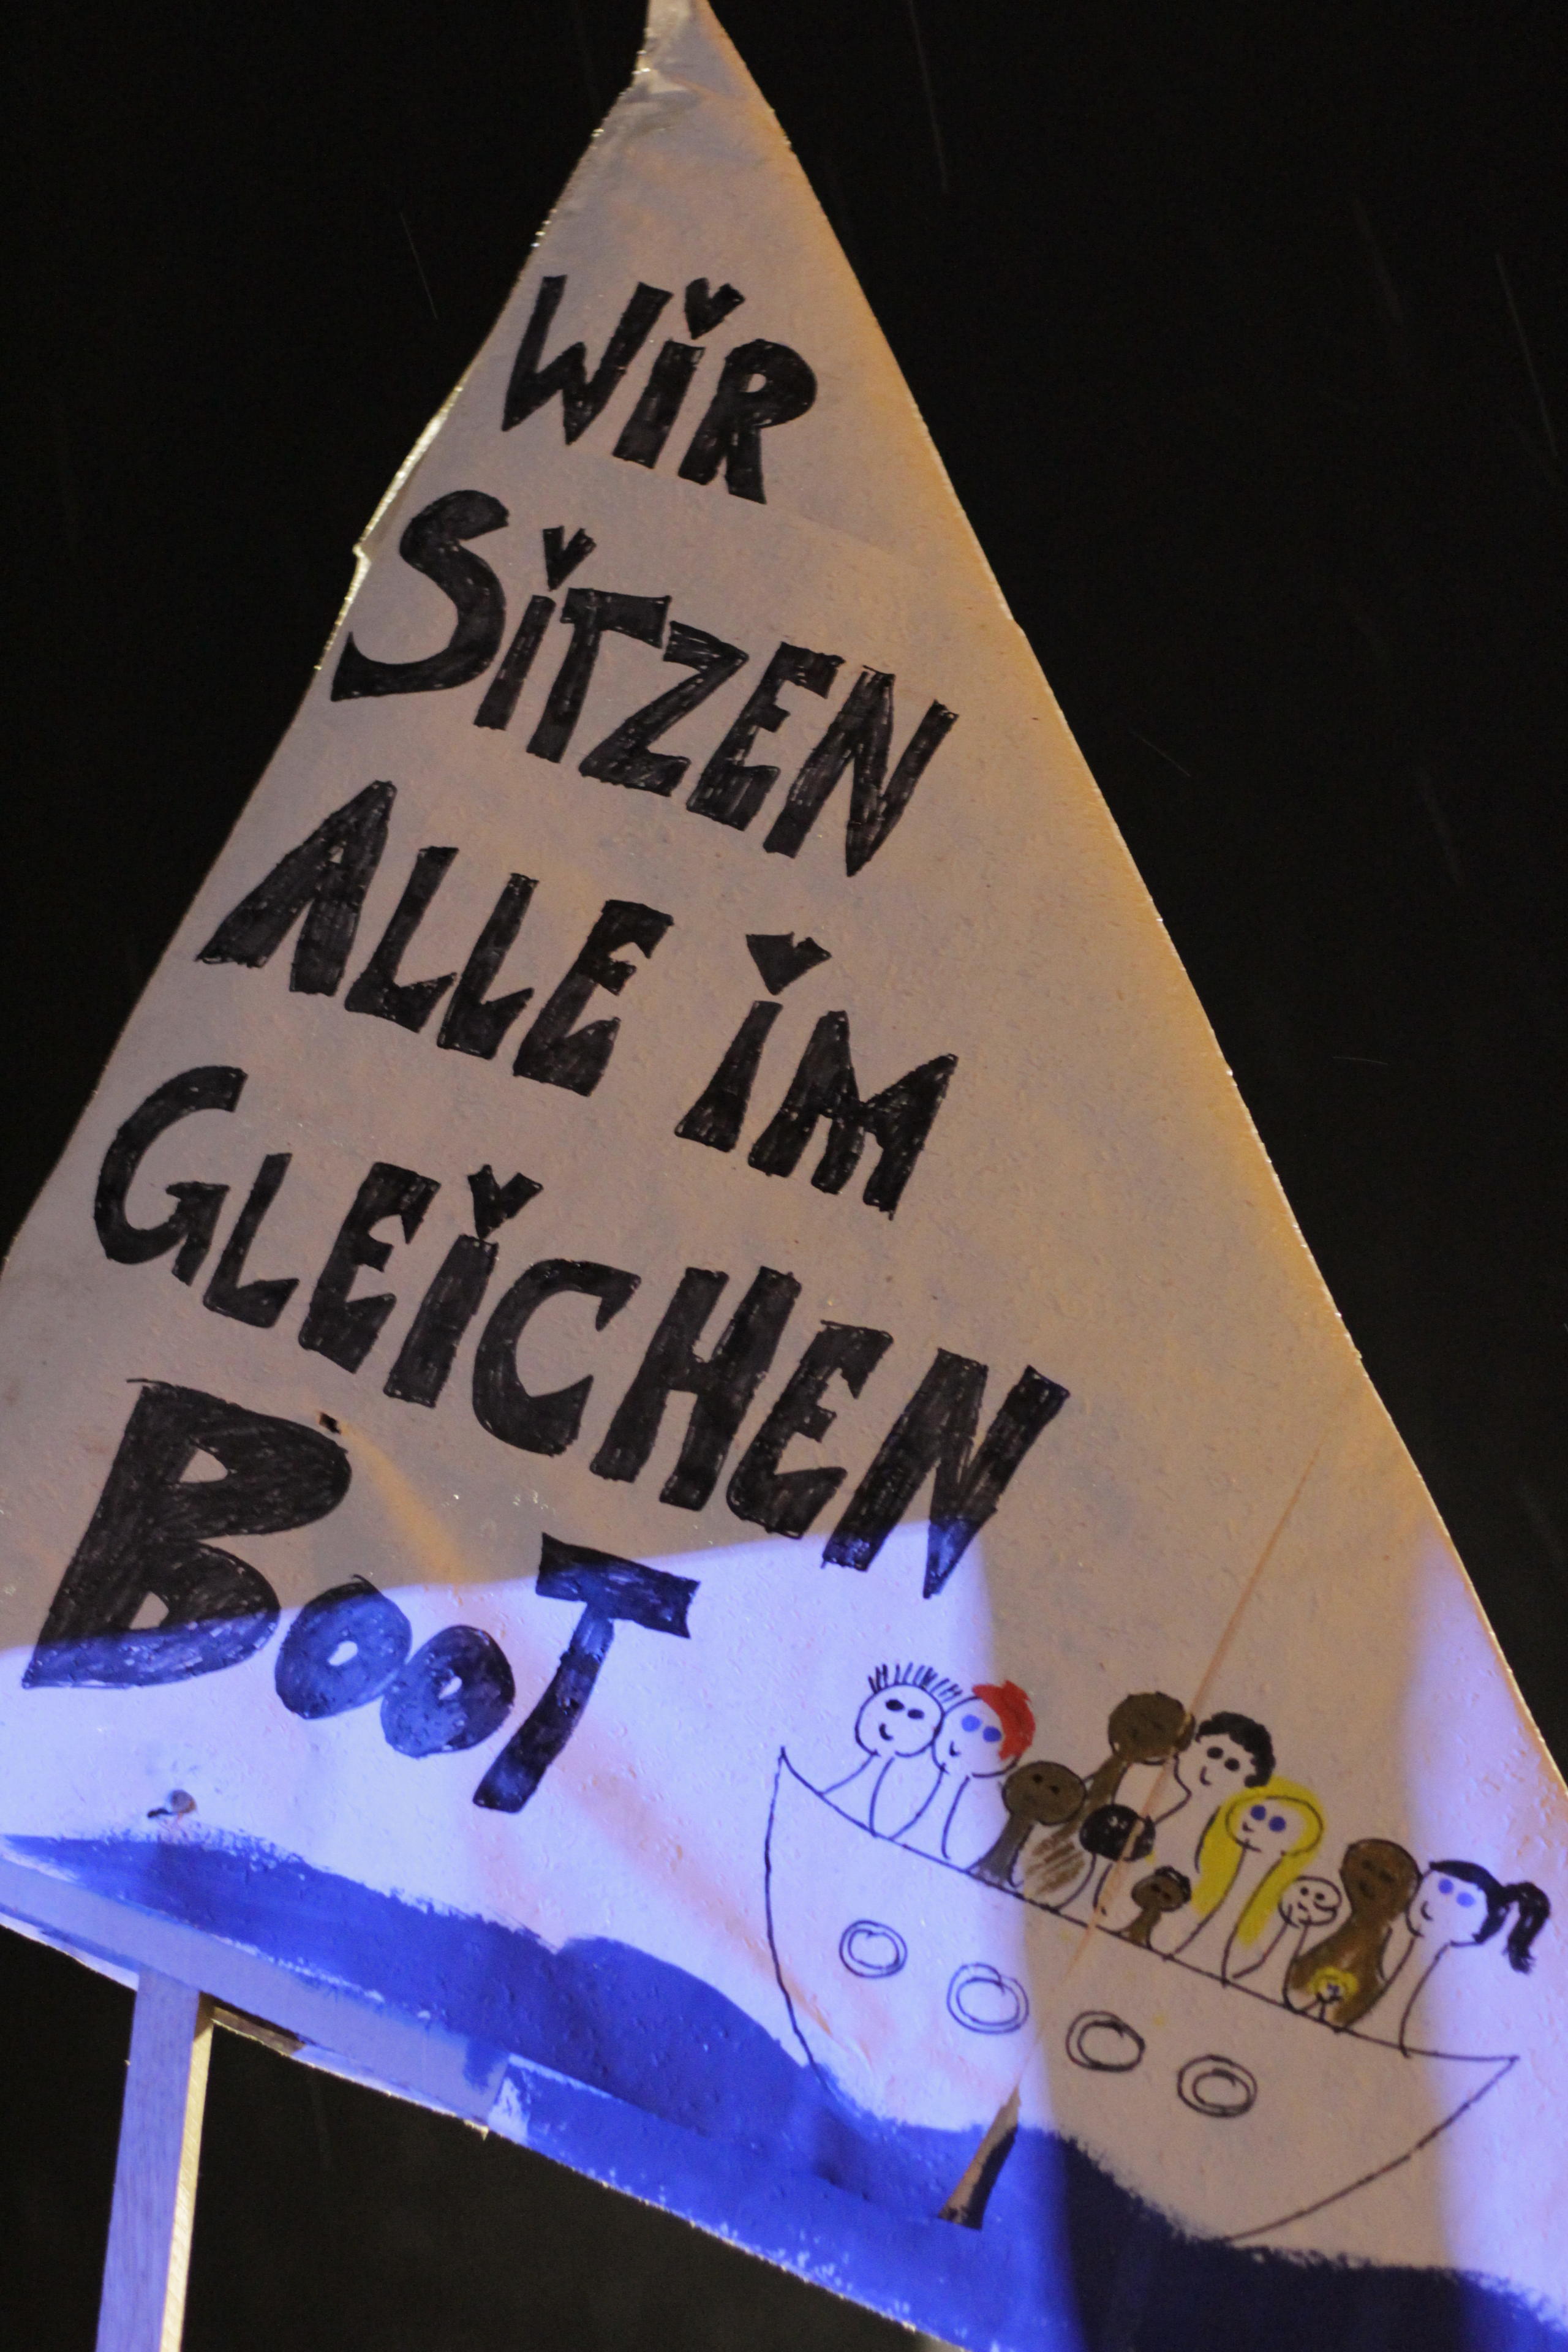 WiR
SiTZEN
ALLE iM
GLEiCHEN
BooT